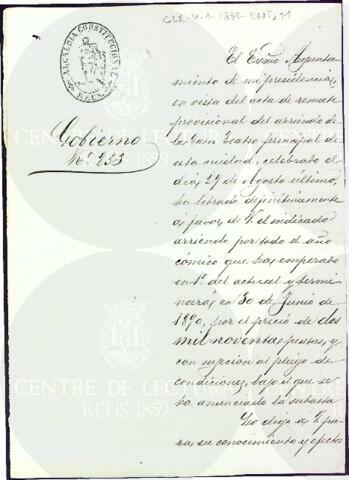 CLE-4.1-1889-ENT, 11
ALCALDIA CONSTITUCIONAL
REUS
Gobierno
Nº 253
El Excmo Ayunta-
miento de mi presidencia,
en vista del acta de remate
provisional del arriendo de
la Casa Teatro principal de
esta ciudad, celebrado el
dia 29 de Agosto último,
ha librado definitivamente
a favor de V. el indicado
arriendo por todo el año
cómico que ha empezado
en 1º del actual y termi-
nará en 30 de Junio de
1890, por el precio de dos
mil noventa pesetas, y
con sujecion al pliego de
condiciones, bajo el que se
ha anunciado la subasta
Lo digo a V. pa-
ra su conocimiento y efectos
CENTRE DE LECTURA
REUS 1859